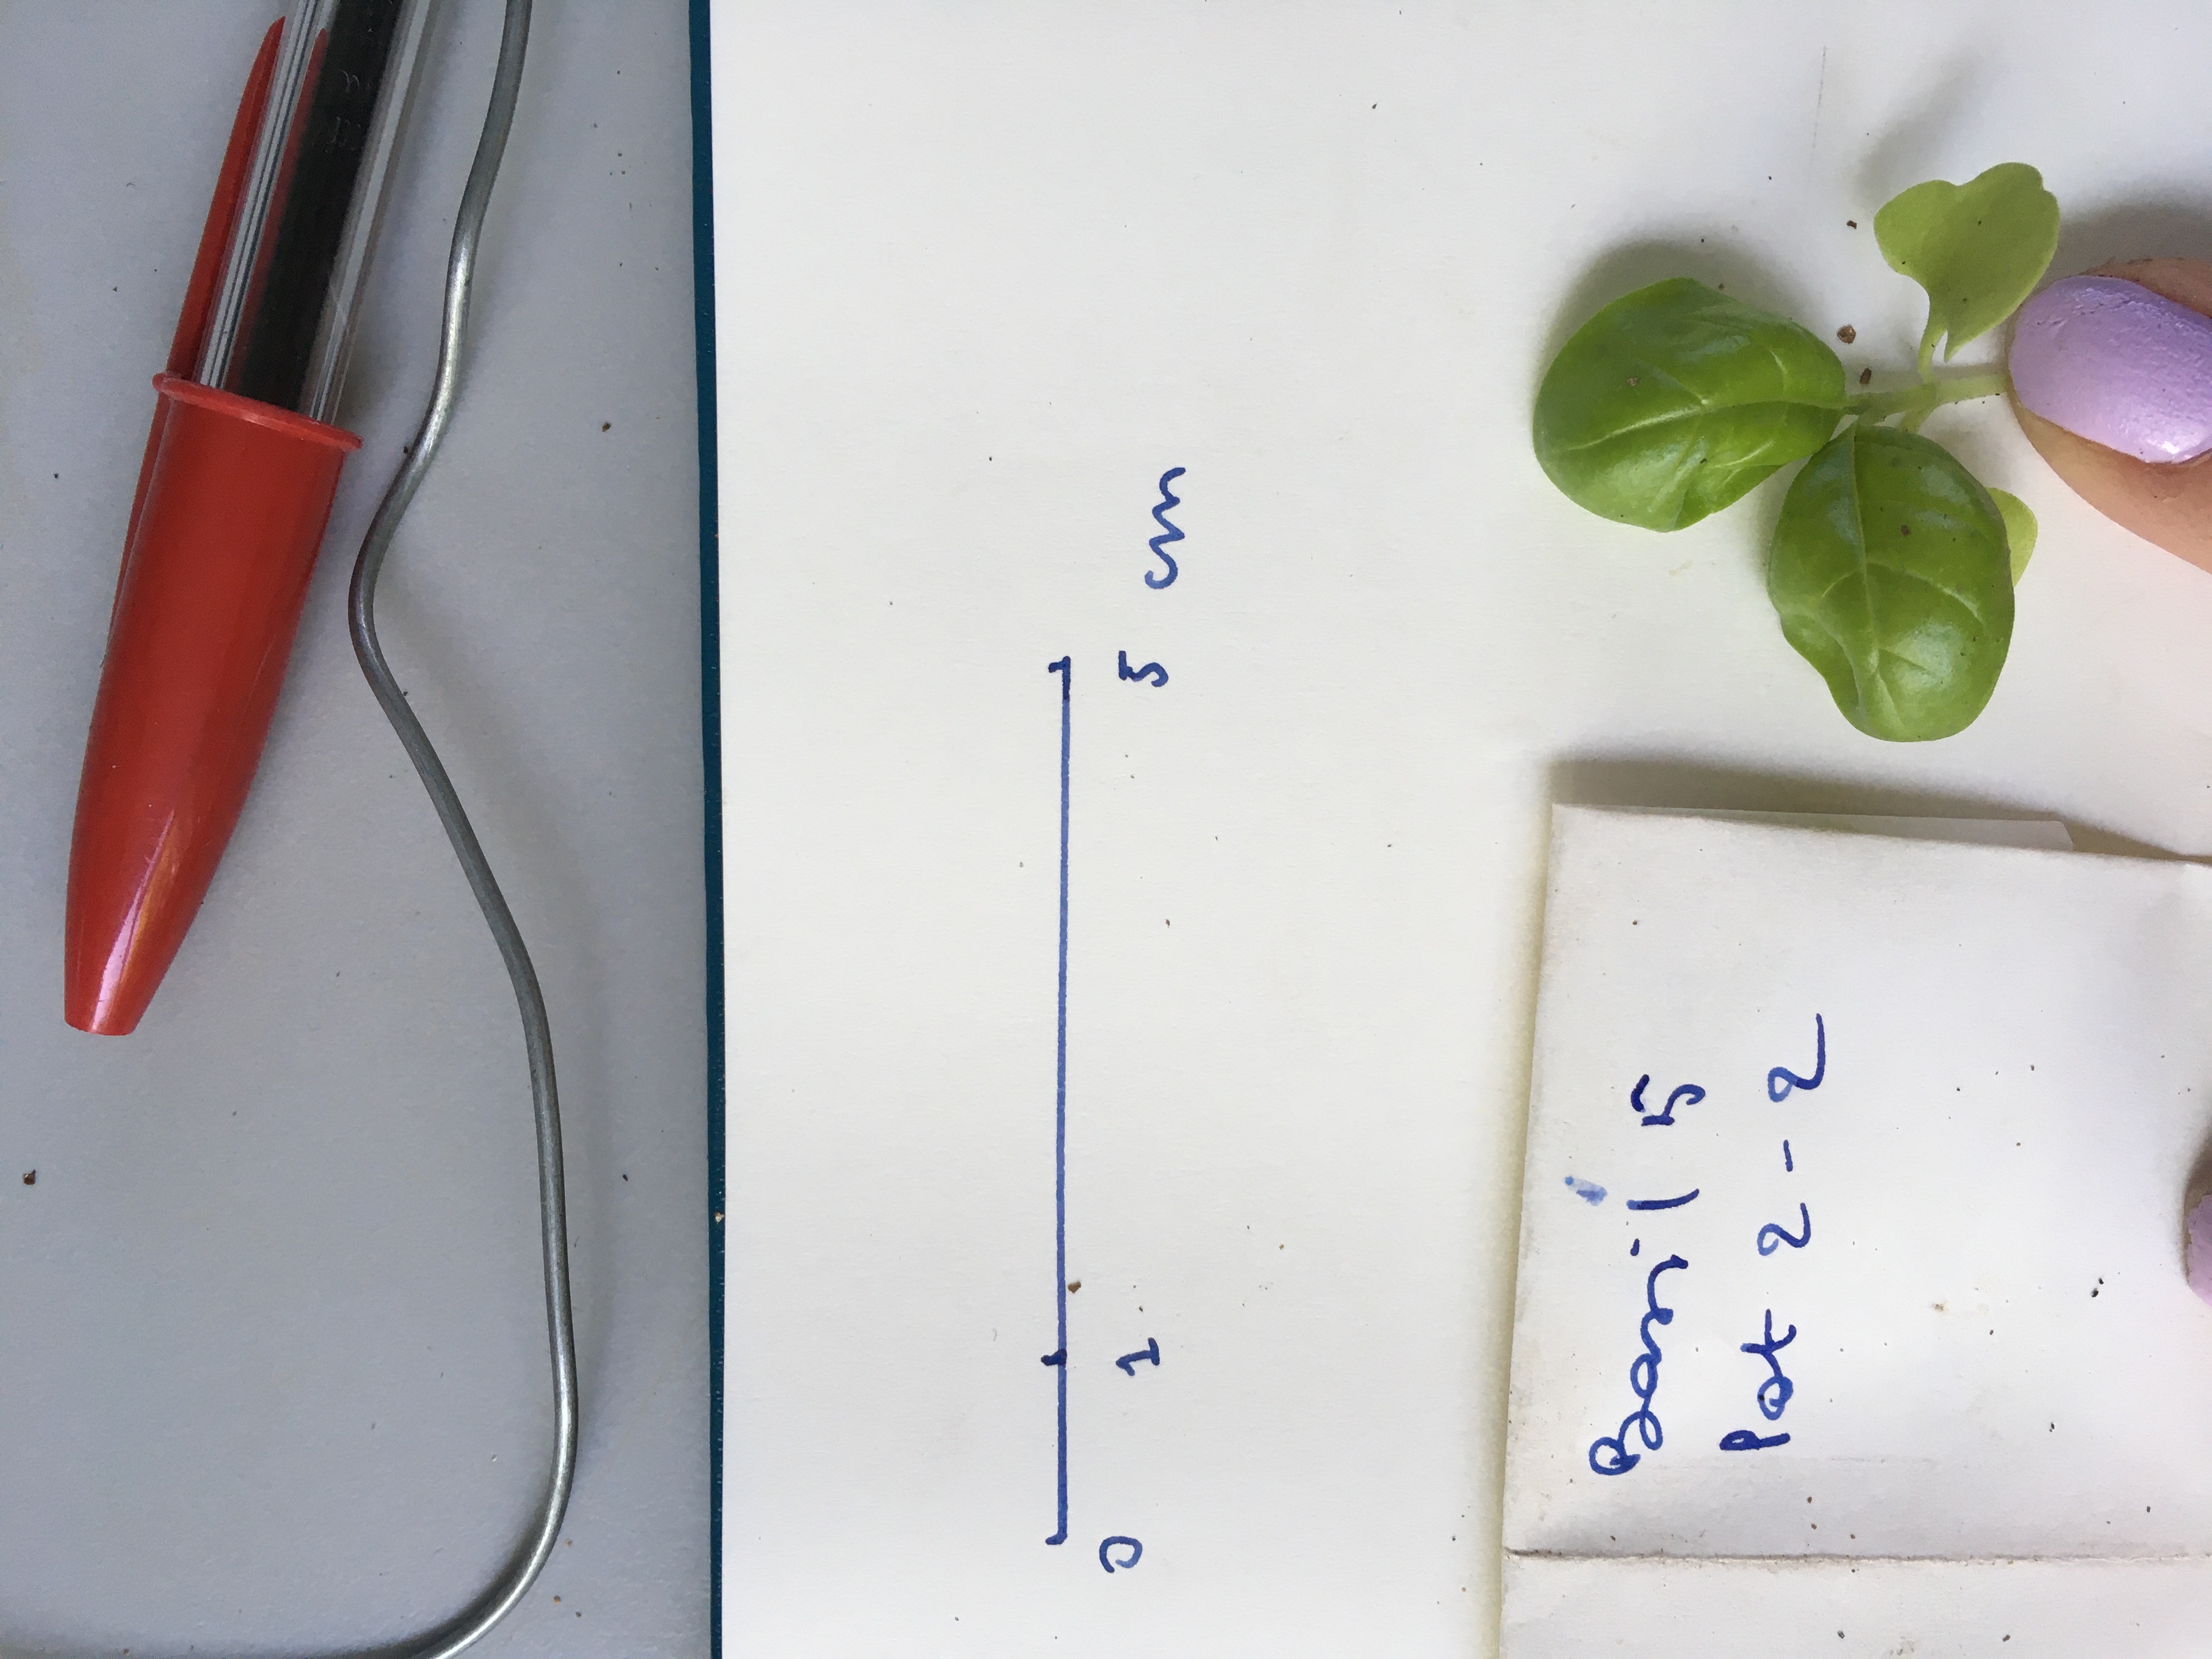 0 1 5 cm
Basil 5
Pot 2-2